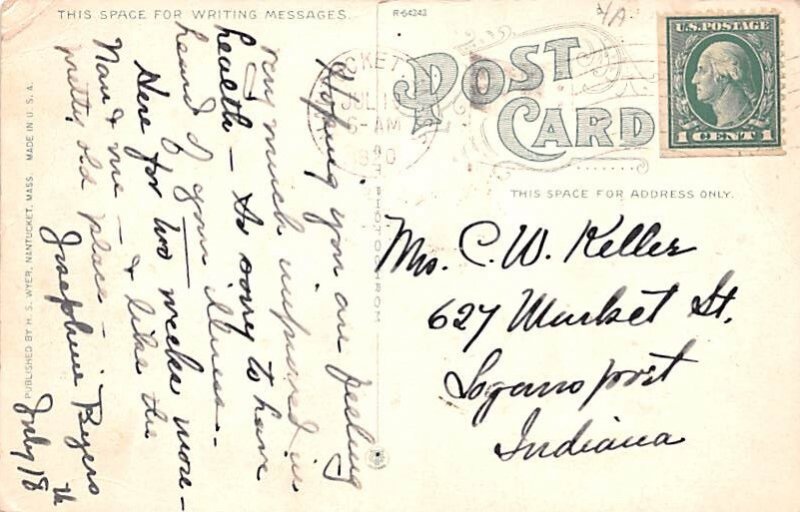 THIS SPACE FOR WRITING MESSAGES.
R-64243
4A
U.S. POSTAGE
1 CENT 1
POST
CARD
CKET
JUL 1
6-AM
1920
THIS SPACE FOR ADDRESS ONLY.
Mrs. C. W. Keller
627 Market St.
Logansport
Indiana
Hoping you are feeling
very much improved in
health - So sorry to have
heard of your illness.
Here for two weeks more -
& like the
Nan & me -
pretty old place -
Josephine Byers
July 18th
PUBLISHED BY H. S. WYER, NANTUCKET, MASS. MADE IN U.S.A.